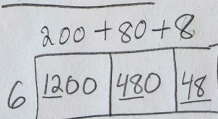 200 + 80 + 8
6 1200 480 48